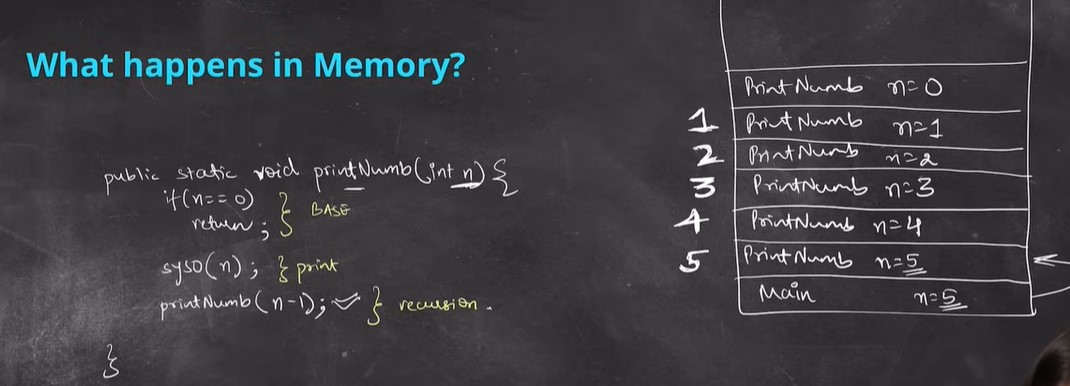 What happens in Memory?
public static void printNumb(int n) {
if(n==0) } BASE
return;
syso(n); } print
printNumb(n-1); } recursion.
}
Print Numb n=0
1 Print Numb n=1
2 Print Numb n=2
3 PrintNumb n=3
4 PrintNumb n=4
5 Print Numb n=5
Main n=5